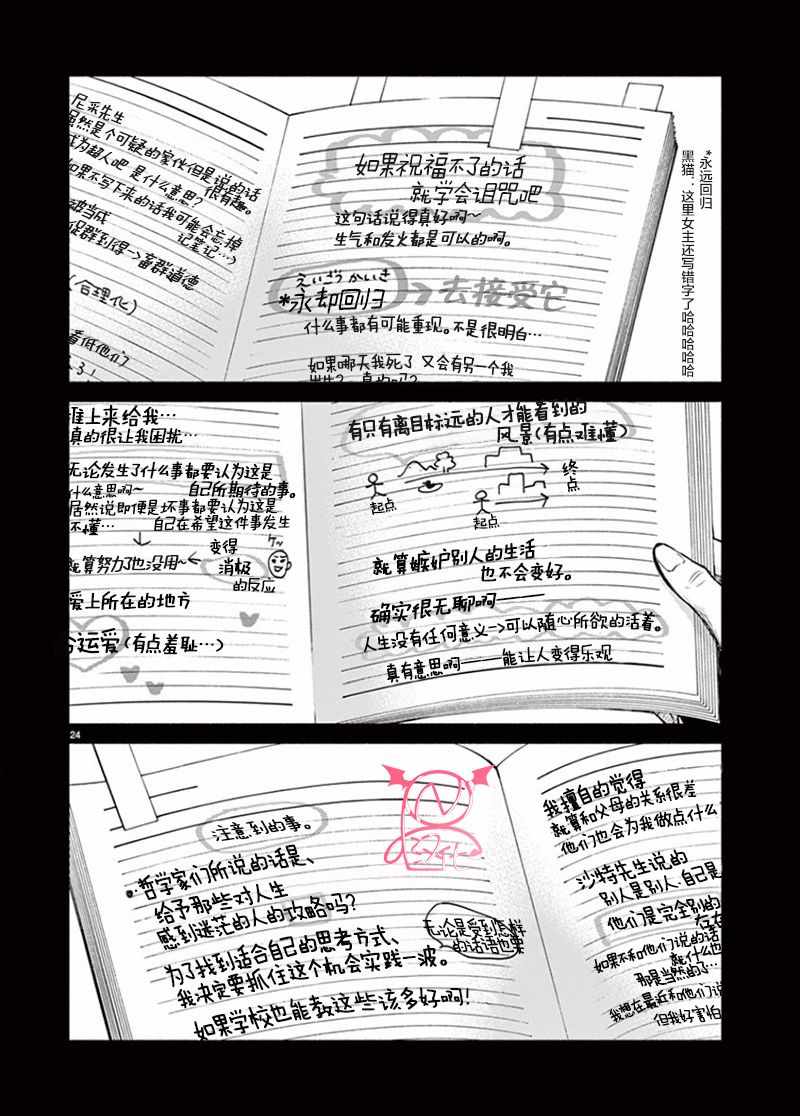 尼采先生
虽然是个可疑的家伙但是说的话
很有趣。
成为超人吧 是什么意思?
如果不写下来的话我可能会忘掉
记笔记…)
被当成
畜群道德
(合理化)
看低他们
如果祝福不了的话
就学会诅咒吧
这句话说得真好啊~
生气和发火都是可以的啊。
えいごうかいき
*永却回归
去接受它
什么事都有可能重现。不是很明白…
如果哪天我死了 又会有另一个我
出生? 真的吗?
*永远回归
黑猫:这里女主还写错字了哈哈哈哈哈
谁上来给我…
真的很让我困扰…
无论发生了什么事都要认为这是
自己所期待的事。
什么意思啊~
居然说即便是坏事都要认为这是
自己在希望这件事发生
不懂…
就算努力了也没用~
变得
消极
的反应
爱上所在的地方
命运爱(有点羞耻…)
有只有离目标远的人才能看到的
风景(有点难懂)
起点
终点
起点
就算嫉妒别人的生活
也不会变好。
确实很无聊啊——
人生没有任何意义->可以随心所欲的活着。
真有意思啊—— 能让人变得乐观
24
注意到的事。
哲学家们所说的话是、
给予那些对人生
感到迷茫的人的攻略吗?
为了找到适合自己的思考方式、
我决定要抓住这个机会实践一波。
如果学校也能教这些该多好啊!
无论是受到怎样
的话语也要
我擅自的觉得
就算和父母的关系很差
他们也会为我做点什么
沙特先生说的
别人是别人.自己是
他们是完全别的
存在
如果不和他们说的话
就什么也
那是当然的了…
我想在最近和他们说
但我好害怕